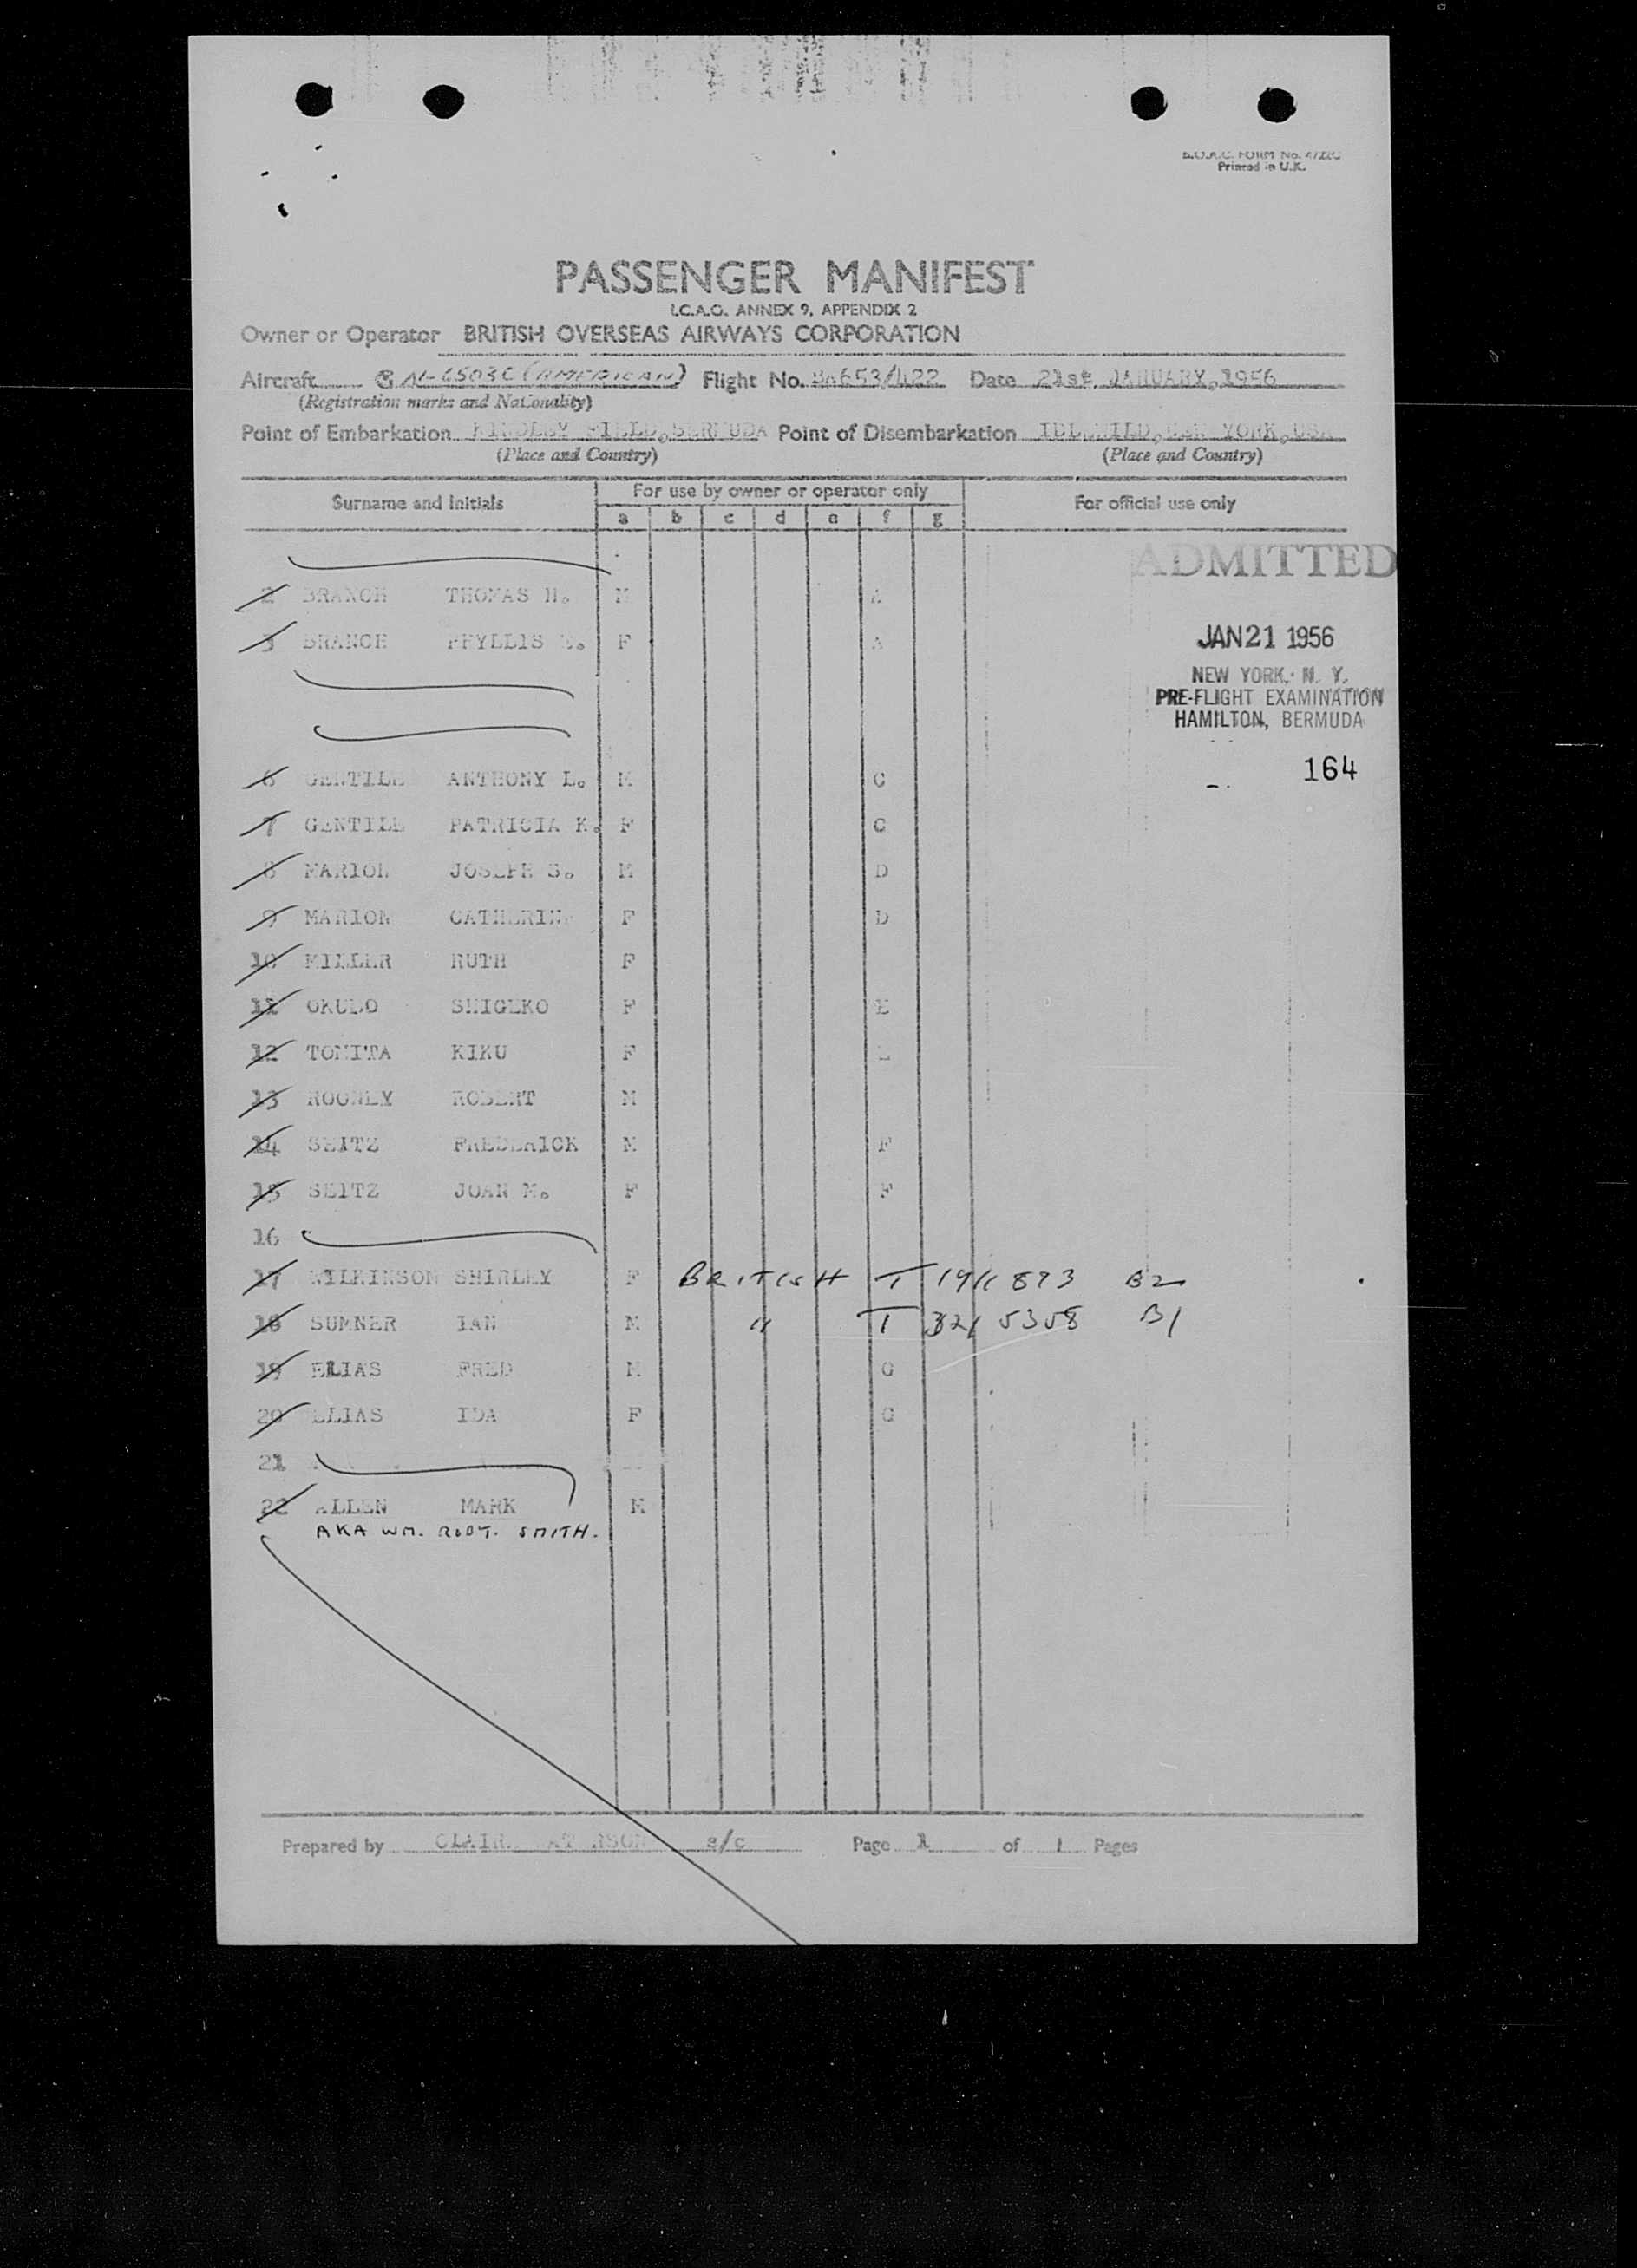 B.O.A.C. FORM No.
Printed in U.K.
PASSENGER MANIFEST
I.C.A.O. ANNEX 9, APPENDIX 2
Owner or Operator BRITISH OVERSEAS AIRWAYS CORPORATION
Aircraft N-6503C (AMERICAN) Flight No. BA653/422 Date 21st JANUARY, 1956
(Registration marks and Nationality)
Point of Embarkation KINDLEY FIELD, BERMUDA Point of Disembarkation IDLEWILD, NEW YORK, USA
(Place and Country) (Place and Country)
Surname and Initials For use by owner or operator only For official use only
a b c d e f g
ADMITTED
2 BRANCH THOMAS H. M A
JAN 21 1956
3 BRANCH PHYLLIS F A
NEW YORK, N. Y.
PRE-FLIGHT EXAMINATION
HAMILTON, BERMUDA
164
6 GENTILE ANTHONY L. M C
7 GENTILE PATRICIA K. F C
8 MARION JOSEPH S. M D
9 MARION CATHERINE F D
10 MILLER RUTH F
11 OKUBO SHIGEKO F E
12 TOMITA KIKU F E
13 ROONEY ROBERT M
14 SEITZ FREDERICK M F
15 SEITZ JOAN M. F F
16
17 WILKINSON SHIRLEY F BRITISH T 1911893 B2
18 SUMNER IAN M " T 5358 B1
19 ELIAS FRED M G
20 ELIAS IDA F G
21
22 ALLEN MARK M
AKA WM. ROBT. SMITH.
Prepared by CLAIRE s/c Page 1 of 1 Pages